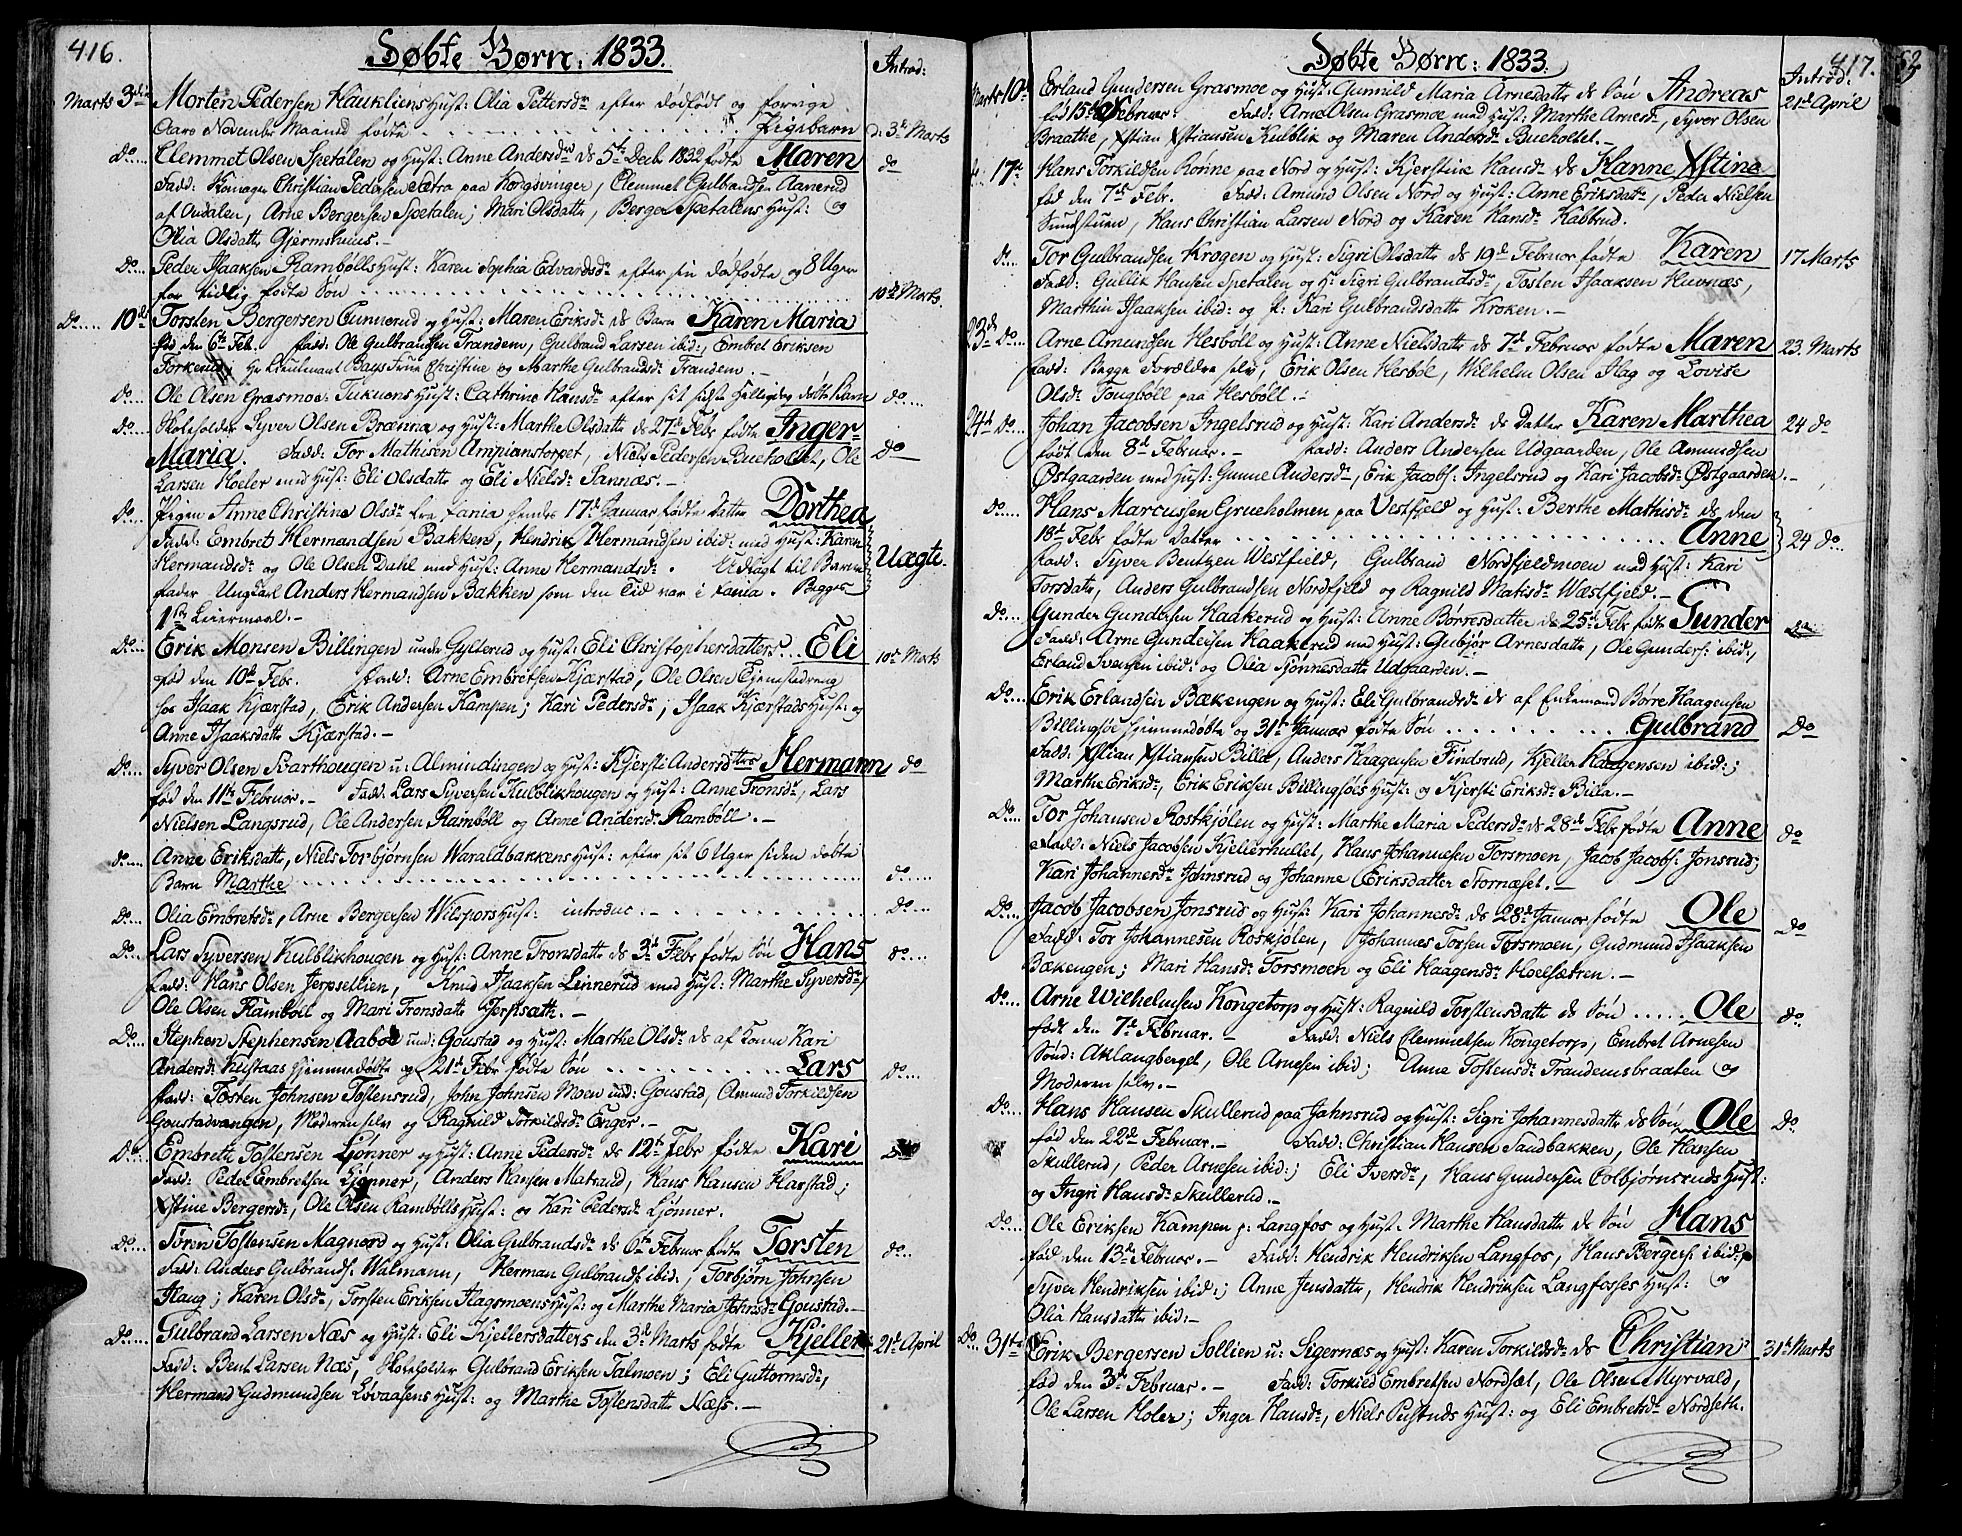 416.
Døbte Børn: 1833.
Introd:
Marts 3die Morten Pedersen Haukliens Hust: Olia Pettersdr efter dødfødt og forrige
Aars November Maaned fødte . . . Pigebarn d: 3de Marts
Do.... Clemmet Olsen Spetalen og Hust: Anne Andersdr ds 5te Decbr 1832 fødte Maren do
Fadd: Christian Pedersen Sætra paa Kongsvinger, Clemmet Gulbrandsen Aanerud
af Oudalen, Arne Bergersen Spetalen; Mari Olsdatter, Berger Spetalens Hust: og
Olia Olsdattr Gjermshuus.-
Do.... Peder Isaaksen Rambølls Hust: Karen Sophia Edvardsdr efter sin dødfødte og 8 Uger
for tidlig fødte Søn . . . 10de Marts
Do..... 10de Torsten Bergersen Gunnerud og Hust: Maren Eriksdr ds Barn Karen Maria
fød den 6te Feb. Fadd: Ole Gulbrandsen Trandem, Gulbrand Larsen ibid:, Embret Eriksen
Torkerud; Hr Lieutenant Bays Frue Christine og Marthe Gulbrandsdr Trandem.-
do... Ole Olsen Grasmoe: Hust: Cathrine Hansdr efter sit sidste Helligdag døbte Barn do....
do... Syver Olsen Brænna og Hust: Marthe Olsdattr ds 27de Febr fødte Inger-
Maria. Fadd: Tor Mathisen Ampianstorpet, Niels Pedersen Bueholtet, Ole do
Larsen Holer med Hust: Eli Olsdattr og Eli Nielsdr Sannæs.-
do... Pigen Anne Christine Olsdr fra Fania hendes 17de Januar fødte Datter Dorthea
Fadd: Embret Hermandsen Bakken, Hendrik Hermandsen ibid: med Hust: Karen
Hermandsdr og Ole Olsen Dahl med Hust: Anne Hermandsdr. Udlagt til Barne Uægte.
fader Ungkarl Anders Hermandsen Bakken som den Tid var i Fania. Begges
1ste Leiermaal.-
Do... Erik Monsen Billingen under Gylterud og Hust: Eli Christophersdatters... Eli 10de Marts
fød den 10de Febr. Fadd: Arne Embretsen Kjærstad, Ole Olsen Tjenestedreng
hos Isaak Kjærstad, Erik Andersen Kampen; Kari Pedersdr, Isaak Kjærstads Hust: og
Anne Isaaksdattr Kjærstad.-
Do... Syver Olsen Svarthougen u: Almindingen og Hust: Kjersti Andersdtrs Hermann do
fød den 11te Februar.- Fadd: Lars Syversen Kulblikhougen og Hust: Anne Tronsdr, Lars
Nielsen Langsrud, Ole Andersen Rambøll og Anne Andersdr Rambøll.-
do.... Anne Eriksdattr, Niels Torbjørnsen Waraldbakkens Hust: efter sit 6 Uger siden døbte
Barn Marthe . . . do.....
Do.... Olia Embretsdr, Arne Bergersen Hust: introduc:- . . . do....
Do.... Lars Syversen Kulblikhougen og Hust: Anne Tronsdatter ds 3de Febr fødte Søn Hans do....
Fadd: Hans Olsen Jerpsetlien, Knud Isaaksen Linnerud med Hust: Marthe Syversdr,
Ole Olsen Rambøll og Mari Tronsdattr Jerpsæth.-
Do... Stephen Stephensen Aabøe und: Goustad og Hust: Marthe Olsdr ds af Konen Kari
Andersdr hjemmedøbte og 21de Febr fødte Søn . . . Lars do...
Fadd: Tosten Johnsen Tostensrud, John Johnsen Moen und: Goustad, Amund Torkildsen
Goustadvangen, Moderen selv og Ragnild Torkildsdr Enger.-
Do... Embreth Tostensen Lønner og Hust: Anne Pedersdr ds 12te Febr fødte Kari do
Fadd: Peder Embretsen Lønner, Anders Hansen Matrand, Hans Hansen Harstad;
Xstine Bergersdr, Ole Olsen Rambølls Hust: og Kari Pedersdr Lønner.
do.... Søren Tostensen Magnord og Hust: Olia Gulbrandsdr ds 6te Februar fødte Torsten do..
Fadd: Anders Gulbrands: Walmann, Herman Gulbrands: ibid:, Torbjørn Johnsen
Haug; Karen Olsdr, Torsten Eriksen Hagsmoens Hust: og Marthe Maria Johnsdr Goustad.-
Do.... Gulbrand Larsen Næs og Hust: Eli Kjellersdatters den 3de Marts fødte Kjeller 21de April
Fadd: Bent Larsen Næs, Gulbrand Eriksen Talmoen; Eli Guttormsdr,
Hermand Gudmundsen Lovaasens Hust: og Marthe Tostensdattr Næss.-
Døbte Børn: 1833.
417.
Introd:
Marts 10de Erland Gundersen Grasmoe og Hust: Gunnild Maria Arnesdatt: ds Søn Andreas 21de April
fød 15de Februar: Fadd: Arne Olsen Grasmoe med Hust: Marthe Arnesdr, Syver Olsen
Braathe, Xstian Xstiansen Kulblik og Maren Andersdr Bueholtet.-
17de Hans Torkildsen Rønne paa Nord og Hust: Kjerstine Hansdr ds Hanne Xstine
fød den 7de Febr. Fadd: Amund Olsen Nord og Hust: Anne Eriksdatr, Peder Nielsen
Sundstuen, Hans Christian Larsen Nord og Karen Hansdr Kabbrud.
do... Tor Gulbrandsen Krogen og Hust: Sigri Olsdattr ds 19de Februar fødte Karen 17 Marts
Fadd: Gullik Hansen Spetalen og H: Sigri Gulbrandsdr, Tosten Isaaksen Huvnæs,
Marthin Isaaksen ibid: og p: Kari Gulbrandsdattr Kroken.-
23de Do... Arne Amundsen Hesbøll og Hust: Anne Nielsdattr ds 7de Februar fødte Maren 23. Marts
Fadd: Begge Forældre selv, Erik Olsen Hesbøl, Wilhelm Olsen Hag og Lovise
Olsdr Tougbøll paa Hesbøll.-
24de Do... Johan Jacobsen Ingelsrud og Hust: Kari Andersdr ds Datter Karen Marthea 24 do
født den 8de Februar.- Fadd: Anders Andersen Udgaarden, Ole Amundsen
Østgaarden med Hust: Gunne Andersdr, Erik Jacobs: Ingelsrud og Kari Jacobsdr Østgaarden.-
Do.... Hans Marcussen Grueholmen paa Vestfjeld og Hust: Berthe Mathisdr ds den
18de Febr fødte Datter . . . Anne 24 do...
Fadd: Syver Bentzen Westfield, Gulbrand Nordfjeldmoen med Hust: Kari
Torsdatr, Anders Gulbrandsen Nordfjeld og Ragnild Matisdr Wæstfjeld.-
do.. Gunder Gundersen Haakerud og Hust: Anne Børresdatter ds 25de Febr fødte Gunder do
Fadd: Arne Gundersen Haakerud med Hust: Gubjør Arnesdattr, Ole Gunders: ibid:,
Erland Svensen ibid: og Olia Tjønnesdattr Udgaarden.-
Do... Erik Erlandsen Bækengen og Hust: Eli Gulbrandsdr ds af Enkemand Børre Haagensen
Billingsøe hjemmedøbte og 31te Januar fødte Søn . . . Gulbrand Do
Fadd: Xstian Xstiansen Billa, Anders Haagensen Findsrud, Kjeller Haagensen ibid:;
Marthe Eriksdr, Erik Eriksen Billingsøes Hust: og Kjersti Eriksdr Billa.-
Do... Tor Johansen Rostkjølen og Hust: Marthe Maria Pedersdr ds 28de Febr fødte Anne do
Fadd: Niels Jacobsen Kjellerhullet, Hans Johannesen Torsmoen, Jacob Jacobs: Jonsrud;
Kari Johannesdr Johnsrud og Johanne Eriksdatter Stornæset.-
Do... Jacob Jacobsen Jonsrud og Hust: Kari Johannesdr ds 28de Januar fødte Ole Do
Fadd: Tor Johannesen Roskjølen, Johannes Torsen Torsmoen, Gudmund Isaaksen
Bækengen; Mari Hansdr Torsmoen og Eli Haagensdr Hoelsætren.-
Do... Arne Wilhelmsen Kongetorp og Hust: Ragnild Torstensdattr ds Søn ..... Ole do.
født den 7de Februar.- Fadd: Niels Clemmetsen Kongetorp, Embret Arnesen
Sønd: Aklangberget, Ole Arnesen ibid; Anne Tostensdr Trandemsbraaten og
Moderen selv.-
do... Hans Hansen Skullerud paa Johnsrud og Hust: Sigri Johannesdattr ds Søn Ole do.
fød den 22de Februar.- Fadd: Christian Hansen Sandbakken, Ole Hansen
Skullerud, Peder Arnesen ibid:; Eli Iversdr, Hans Gundersen Colbjørnsruds Hust:
og Ingri Hansdr Skullerud.-
Do... Ole Eriksen Kampen p: Langfos og Hust: Marthe Hansdattr ds Søn Hans
fød den 13de Februar.- Fadd: Hendrik Hendriksen Langfos, Hans Bergers: ibid:,
Syver Hendriksen ibid:; Anne Jensdattr, Hendrik Hendriksen Langfosses Hust: og
Olia Hansdattr ibid:-
Do... 31te Erik Bergersen Sollien u: Sigernæs og Hust: Karen Torkildsdr ds Christian 31te Marts
fød den 3de Februar.- Fadd: Torkild Embretsen Nordsæt, Ole Olsen Myrvald,
Ole Larsen Holer; Inger Hansdr, Niels Hust: og Eli Embretsdr Nordseth.